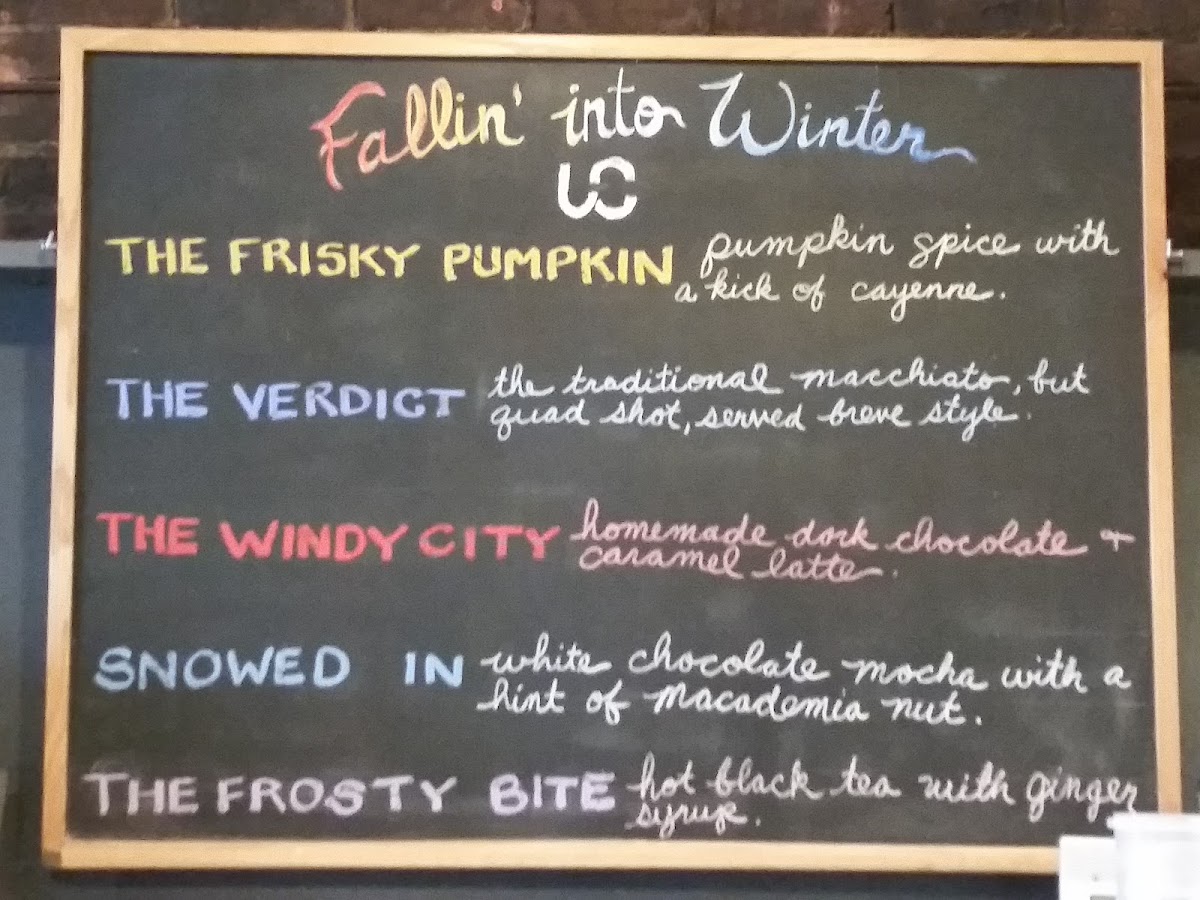 Fallin' into Winter
UC
THE FRISKY PUMPKIN pumpkin spice with
a kick of cayenne.
THE VERDICT the traditional macchiato, but
quad shot, served breve style.
THE WINDY CITY homemade dark chocolate +
caramel latte.
SNOWED IN white chocolate mocha with a
hint of macademia nut.
THE FROSTY BITE hot black tea with ginger
syrup.